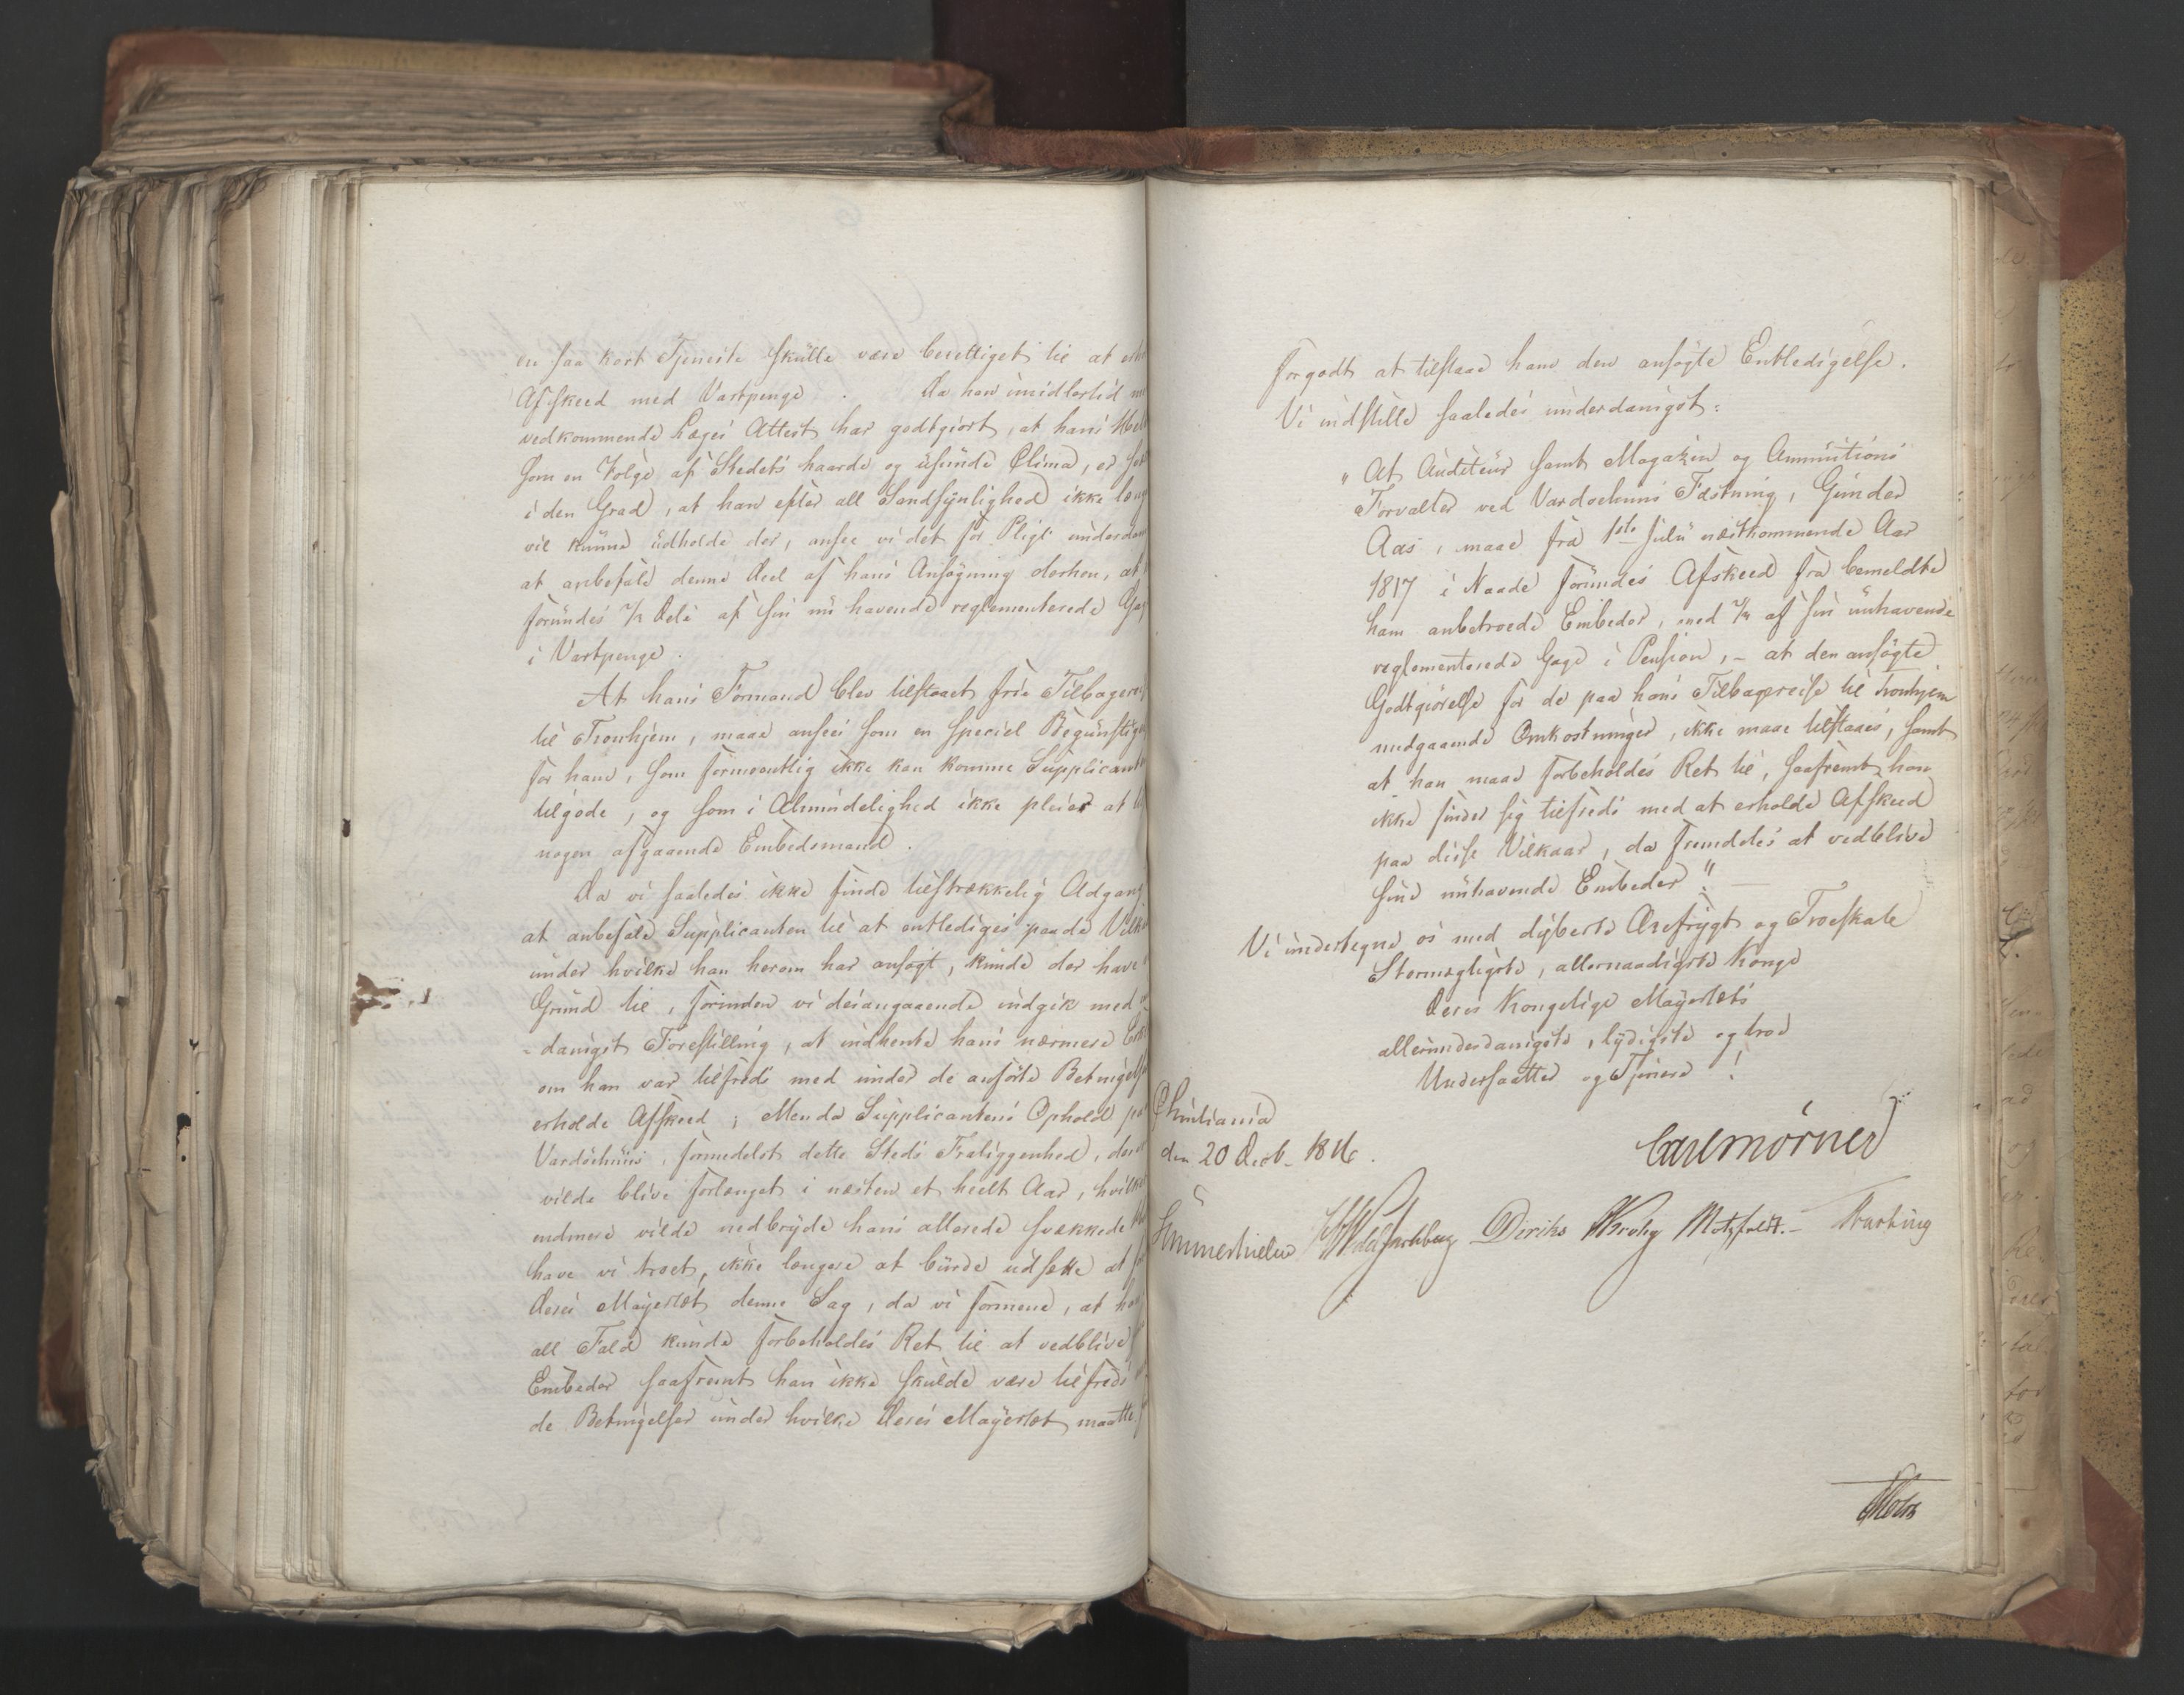 en saa kort Tjeneste skulle være berettiget til at
Afskeed med Vartpenge. Da han imidlertid
vedkommende Læges Attest har godtgiort, at hans
som en Følge af Stedets haarde og usunde Clima, er
i den Grad, at han efter all Sandsynlighed ikke
vil kunne udholde der, ansee vi det for Pligt
at anbefale denne Deel af hans Ansøgning derhen, at
forundes Dele af sin nu havende reglementerede
i Vartpenge.
At hans Formand blev tilstaaet frie
til Tronhjem, maae ansees som en speciel
for ham, som formeentlig ikke kan komme
tilgode, og som i Almindelighed ikke pleier at
nogen afgaaende Embedsmand.
Da vi saaledes ikke finde tilstrækkelig Adgang
at anbefale Supplicanten til at entlediges paa de
under hvilke han herom har ansøgt, kunde der have
Grund til, forinden vi desangaaende indgik med
-danigst Forestilling, at indhente hans nærmere
om han var tilfreds med under de anførte
erholde Afskeed; Men da Supplicantens Ophold
Vardøehuus, formedelst dette Steds Fraliggenhed,
vilde blive forlænget i næsten et heelt Aar,
endmere vilde nedbryde hans allerede svækkede
have vi troet, ikke længere at burde udsætte at
Deres Majestæt denne Sag, da vi formene, at
all Fald kunde forbeholdes Ret til at vedblive
Embeder saafremt han ikke skulde være tilfreds
de Betingelser under hvilke Deres Majestæt maatte
forgodt at tilstaae ham den ansøgte Entledigelse.
Vi indstille saaledes underdanigst:
"At Auditeur samt Magazin og Ammunitions
Forvalter ved Vardoehuus Fæstning, Gunder
Aas, maae fra 1ste Julii næstkommende Aar
1817 i Naade forundes Afskeed fra bemeldte
ham anbetroede Embeder, med af sin nuhavende
reglementerede Gage i Pension, - at den ansøgte
Godtgiørelse for de paa hans Tilbagereise til Tronhjem
medgaaende Omkostninger, ikke maae tilstaaes, samt
at han maae forbeholdes Ret til, saafremt han
ikke finder sig tilfreds med at erholde Afskeed
paa disse Vilkaar, da fremdeles at vedblive
sine nuhavende Embeder."
Vi undertegne os med dybeste Ærefrygt og Troeskab
Stormægtigste, allernaadigste Konge
Deres Kongelige Majestæts
allerunderdanigste, lydigste og troe
Undersaatter og Tjenere!
Christiania
den 20 Decb. 1816.
Carl Mörner
Sommerhielm Diriks Krohg Motzfeldt.-
Holst